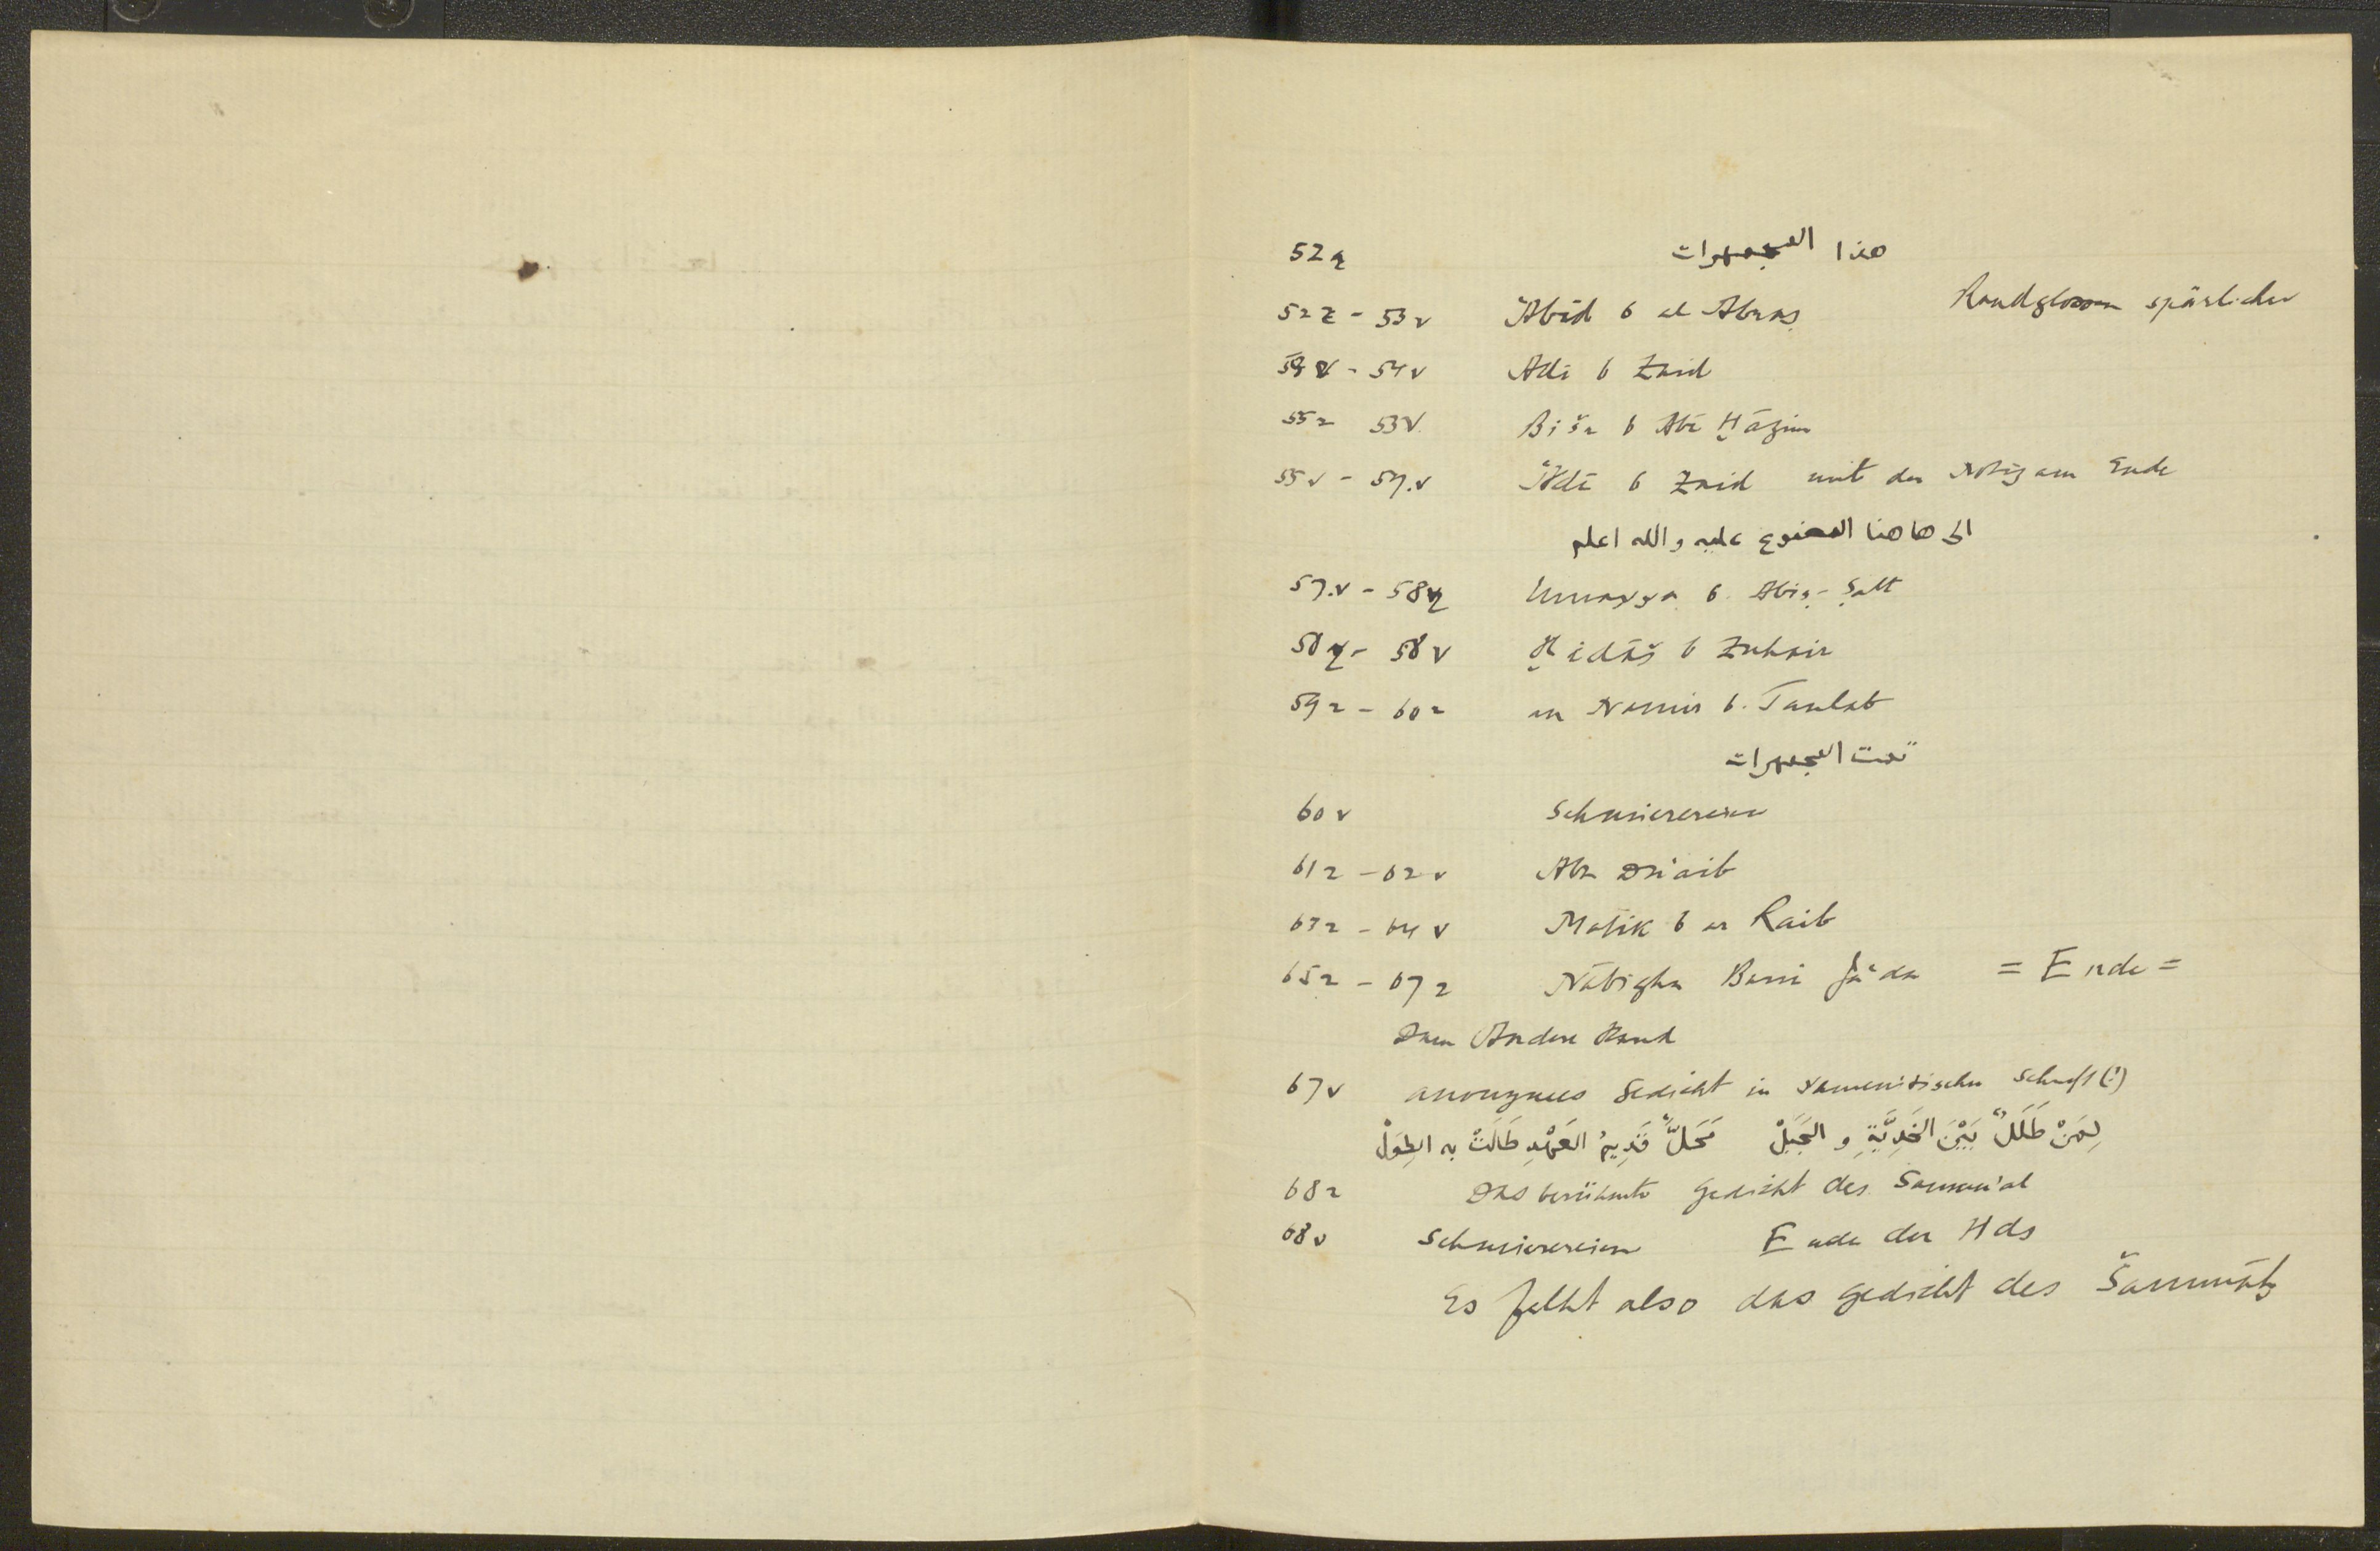 52r هذا المجمهرات
52r - 53v ʿAbīd b al Abraṣ Randglossen spärlicher
54r - 54v Adī b Zaid
55r 53v Bišr b Abī Ḫāzim
55v - 57.v ʿAdī b Zaid mit der Notiz am Ende
الى هاهنا المصنوع عليه والله اعلم
57.v - 58r Umayya b. Abiṣ-Ṣalt
58r - 58v Ḫidāš b Zuhair
59r - 60r an Namir b. Taulab
تمت المجمهرات
60v Schmierereien
61r - 62v Abu Ḏu'aib
63r - 64v Malik b ar Raib
65r - 67r Nābigha Bani Ǧaʿda = Ende =
Dann Andere Hand
67v anonymes Gedicht in yamenitischer Schrift (!)
لِمَنْ طَلَلٌ بَيْنَ الجُدَيَّةِ و الجَبَلْ مَحَلٌّ قَدِيمُ العَهْدِ طَالَتْ به الطِوَلْ
68r Das berühmte Gedicht des Samau'al
68v Schmierereien Ende der Hds
Es fehlt also das Gedicht des Šammāḫ